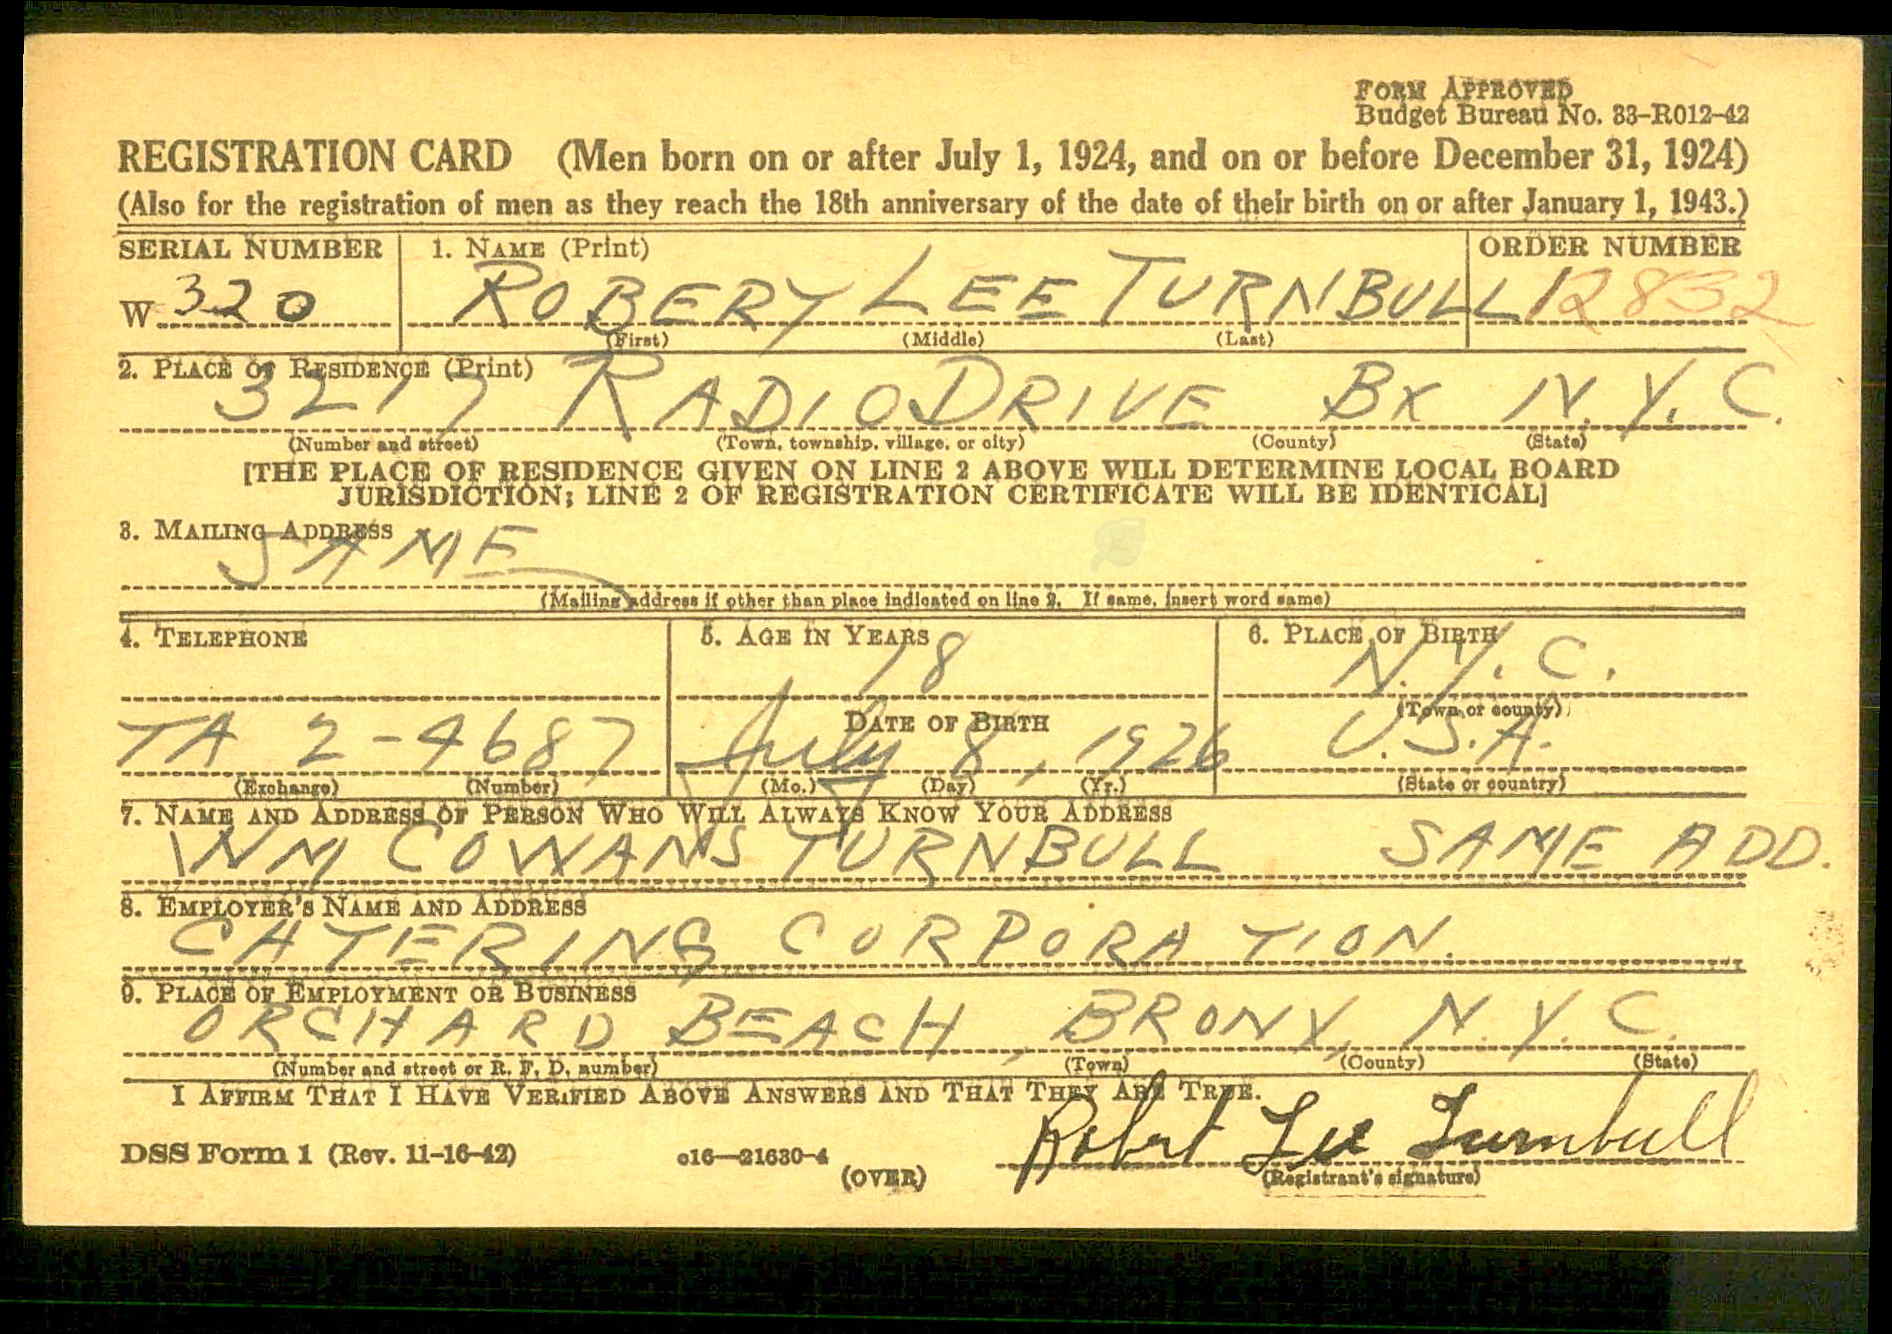 FORM APPROVED
Budget Bureau No. 33-R012-42
REGISTRATION CARD (Men born on or after July 1, 1924, and on or before December 31, 1924)
(Also for the registration of men as they reach the 18th anniversary of the date of their birth on or after January 1, 1943.)
SERIAL NUMBER 1. NAME (Print) ORDER NUMBER
W 320 ROBERT LEE TURNBULL 12832
(First) (Middle) (Last)
2. PLACE OF RESIDENCE (Print)
3217 RADIO DRIVE BX N.Y.C.
(Number and street) (Town, township, village, or city) (County) (State)
[THE PLACE OF RESIDENCE GIVEN ON LINE 2 ABOVE WILL DETERMINE LOCAL BOARD
JURISDICTION; LINE 2 OF REGISTRATION CERTIFICATE WILL BE IDENTICAL]
3. MAILING ADDRESS
SAME
(Mailing address if other than place indicated on line 2. If same, insert word same)
4. TELEPHONE 5. AGE IN YEARS 6. PLACE OF BIRTH
18 N.Y.C.
DATE OF BIRTH (Town or county)
TA 2-4687 July 8, 1926 U.S.A.
(Exchange) (Number) (Mo.) (Day) (Yr.) (State or country)
7. NAME AND ADDRESS OF PERSON WHO WILL ALWAYS KNOW YOUR ADDRESS
WM COWANS TURNBULL SAME ADD.
8. EMPLOYER'S NAME AND ADDRESS
CATERING CORPORATION.
9. PLACE OF EMPLOYMENT OR BUSINESS
ORCHARD BEACH, BRONX, N.Y.C.
(Number and street or R. F. D. number) (Town) (County) (State)
I AFFIRM THAT I HAVE VERIFIED ABOVE ANSWERS AND THAT THEY ARE TRUE.
Robert Lee Turnbull
DSS Form 1 (Rev. 11-16-42) c16—21630-4 (OVER) (Registrant's signature)